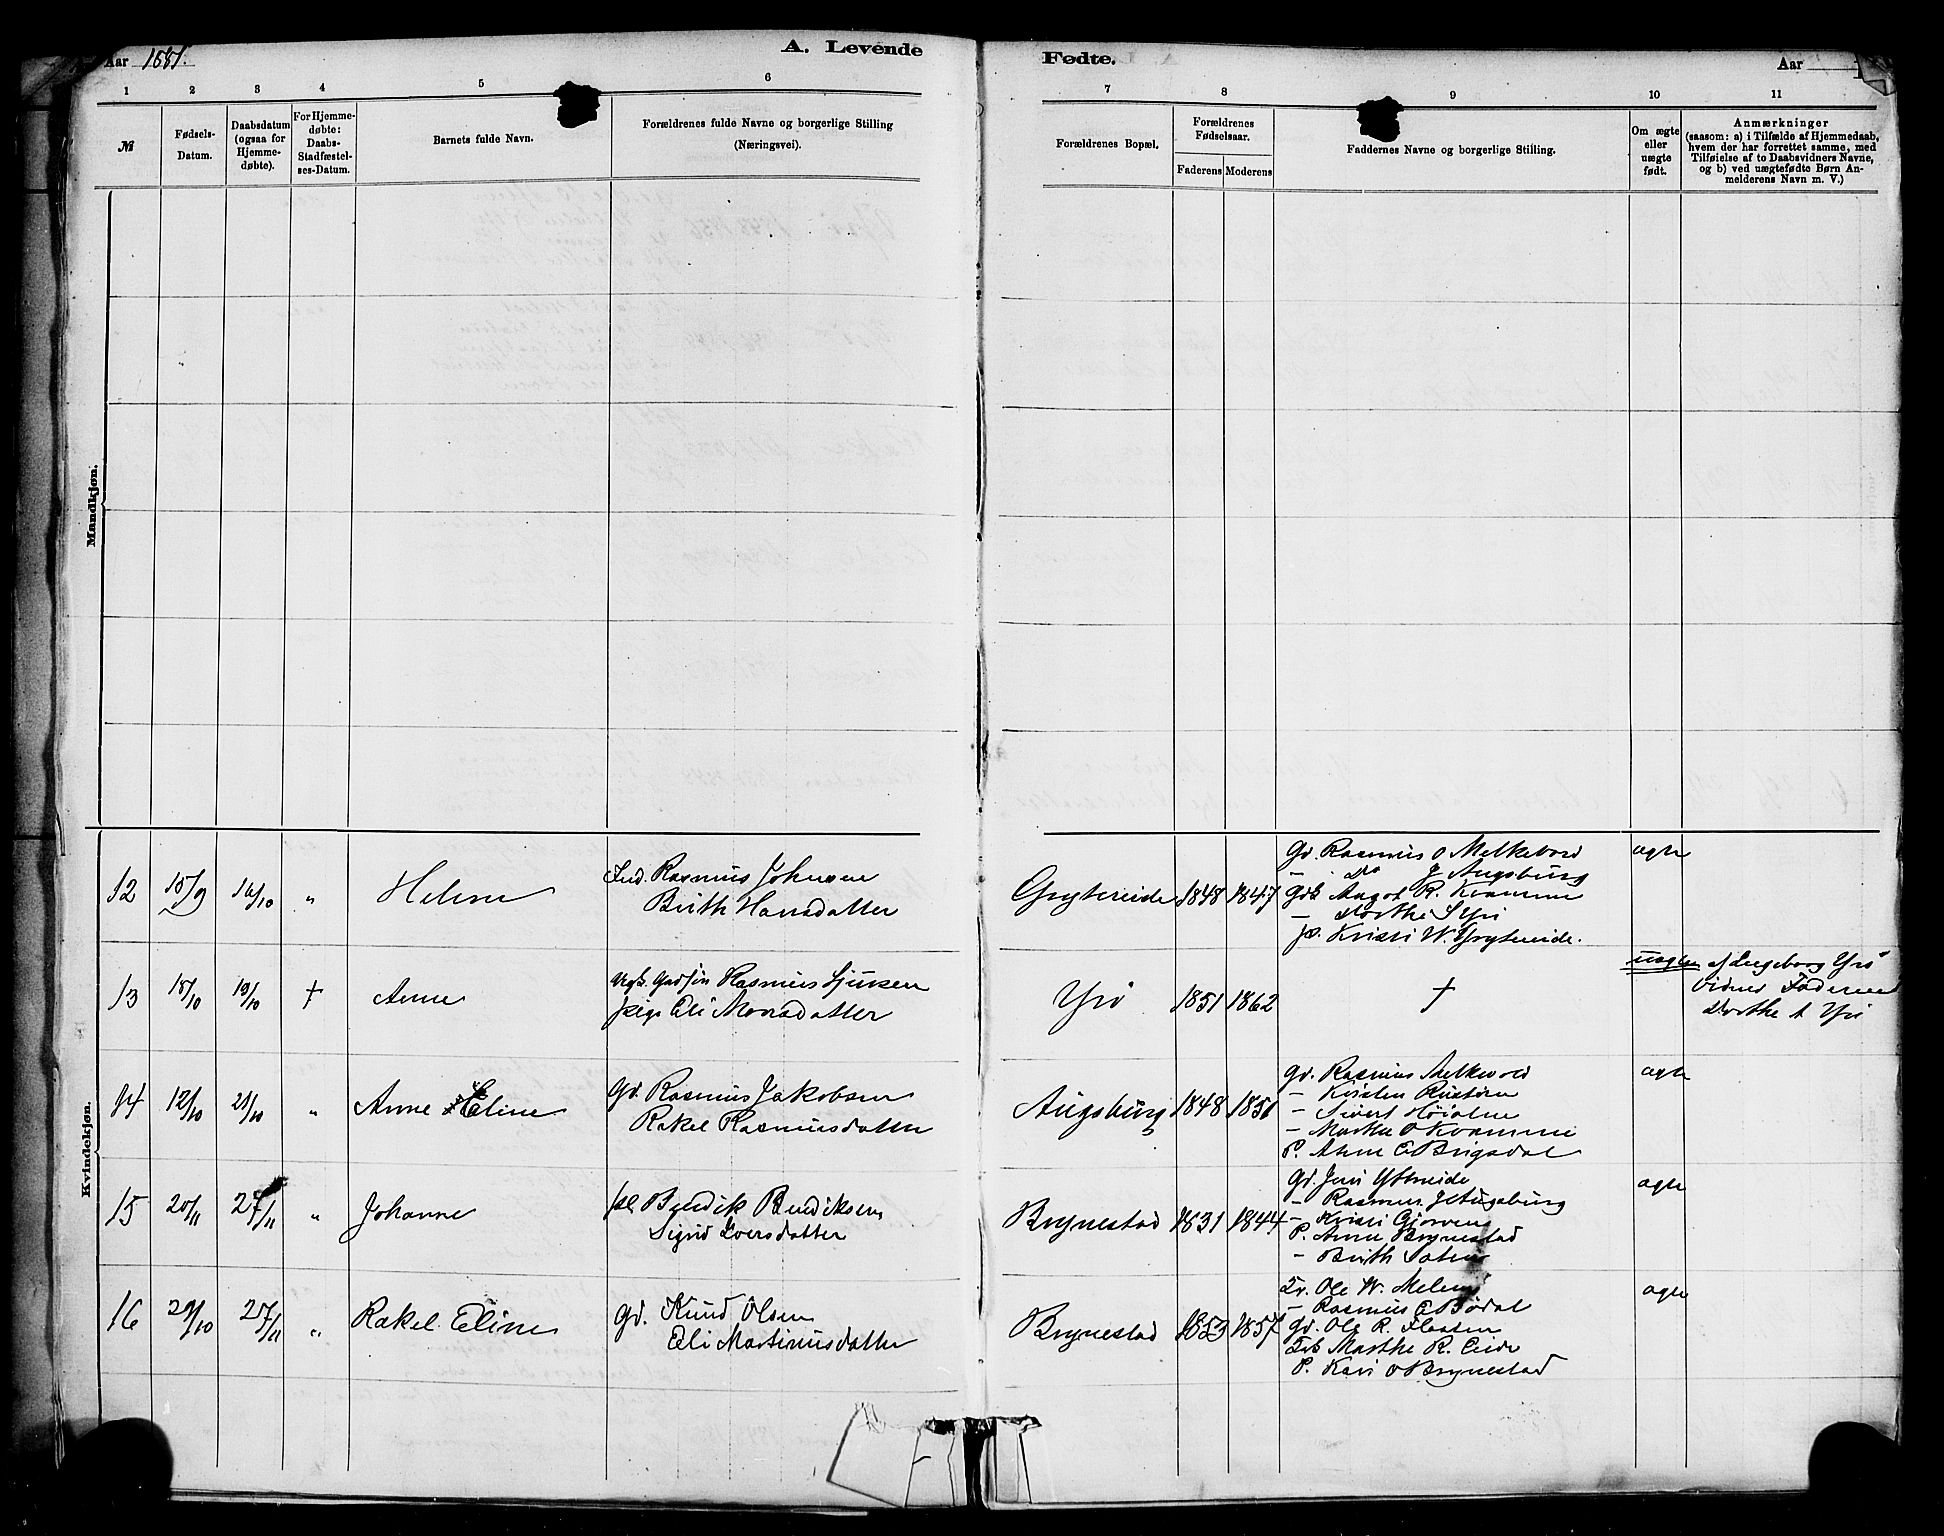 Aar 1881. A. Levende Fødte. Aar
1 2 3 4 5 6 7 8 9 10 11
№
Fødsels-Datum.
Daabsdatum (ogsaa for Hjemme-døbte).
For Hjemme-døbte: Daabs-Stadfæstel-ses-Datum.
Barnets fulde Navn.
Forældrenes fulde Navne og borgerlige Stilling (Næringsvei).
Forældrenes Bopæl.
Forældrenes Fødselsaar.
Faderens Moderens
Faddernes Navne og borgerlige Stilling.
Om ægte eller uægte født.
Anmærkninger (saasom: a) i Tilfælde af Hjemmedaab, hvem der har forrettet samme, med Tilføielse af to Daabsvidners Navne, og b) ved uægtefødte Børn An-melderens Navn m. V.)
Mandkjøn.
Kvindekjøn.
12 15/9 16/10 " Helene
Ind. Rasmus Johnsen
Brith Hansdatter
Grytereide 1848 1847
Gd. Rasmus O Melkevold
- Do J Augsburg
Gdk Angot R. Kvamme
- Dorthe S Yri
P. Kristi W. Grytereide.
ægte
13 15/10 19/10 † Anne
Ungk. Rasmus Sjursen
pige Eli Monsdatter
Yri 1851 1862
†
uægte
af Ingeborg Yri
Vidner Faderen
Dorthe A Yri
14 12/10 21/10 " Anne Eline
Gd. Rasmus Jakobsen
Rakel Rasmusdatter
Augsburg 1848 1851
Gd. Rasmus Melkevold
- Kristen Rustøen
- Sivert Høialme
- Marthe O Kvamme
P. Anne E Brigsdal
ægte
15 20/11 27/11 " Johanne
pl. Bendik Bendiksen
Sigrid Iversdatter
Brynestad 1831 1844
Gd. Jens Ytreeide
- Rasmus J Augsburg
- Kristi Gjørven
P. Anne Brynestad
- Brith
ægte
16 29/10 27/11 " Rakel Eline
Gd. Knud Olsen
Eli Martinusdatter
Brynestad 1853 1857
Ole W. Melem
- Rasmus E Bødal
Gd. Ole R. Flaaten
Marthe R. Eide
P. Kari O Brynestad
ægte